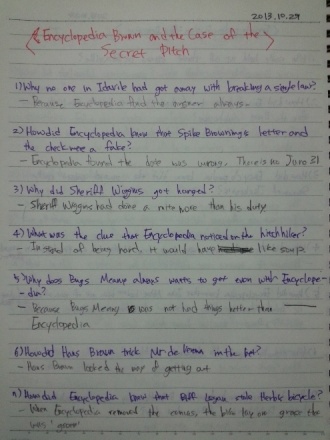 2013.10.29
< Encyclopedia Brown and the Case of the
Secret Pitch >
1) Why no one in Idaville had got away with breaking a single law?
- Because Encyclopedia find the answer always.
2) How did Encyclopedia knew that Spike Browning's letter and
the check were a fake?
- Encyclopedia found the date was wrong. There is no June 31
3) Why did Sheriff Wiggins got
- Sheriff Wiggins had done a more than his duty
4) What was the clue that Encyclopedia noticed on the hitchhiker?
- Instead of being hard, it would have like soup.
5) Why does Bugs Meany always wants to get even with Encyclope-
dia?
- Because Bugs Meany was not had things better than
Encyclopedia
6) How did Hans Brown trick Mr. de in the bet?
- Hans Brown locked the way of getting out
7) How did Encyclopedia knew that stole Herbie bicycle?
- When Encyclopedia removed the the bike lay on grass
was